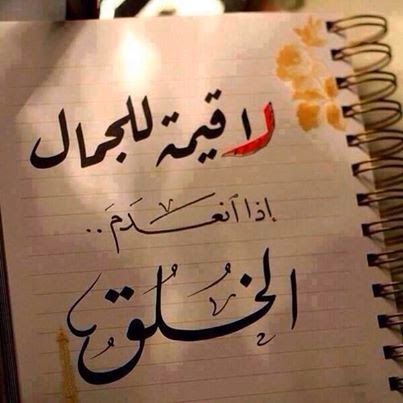 لا قيمة للجمال
إذا ٱنعـدَمَ..
الخُـلُـق